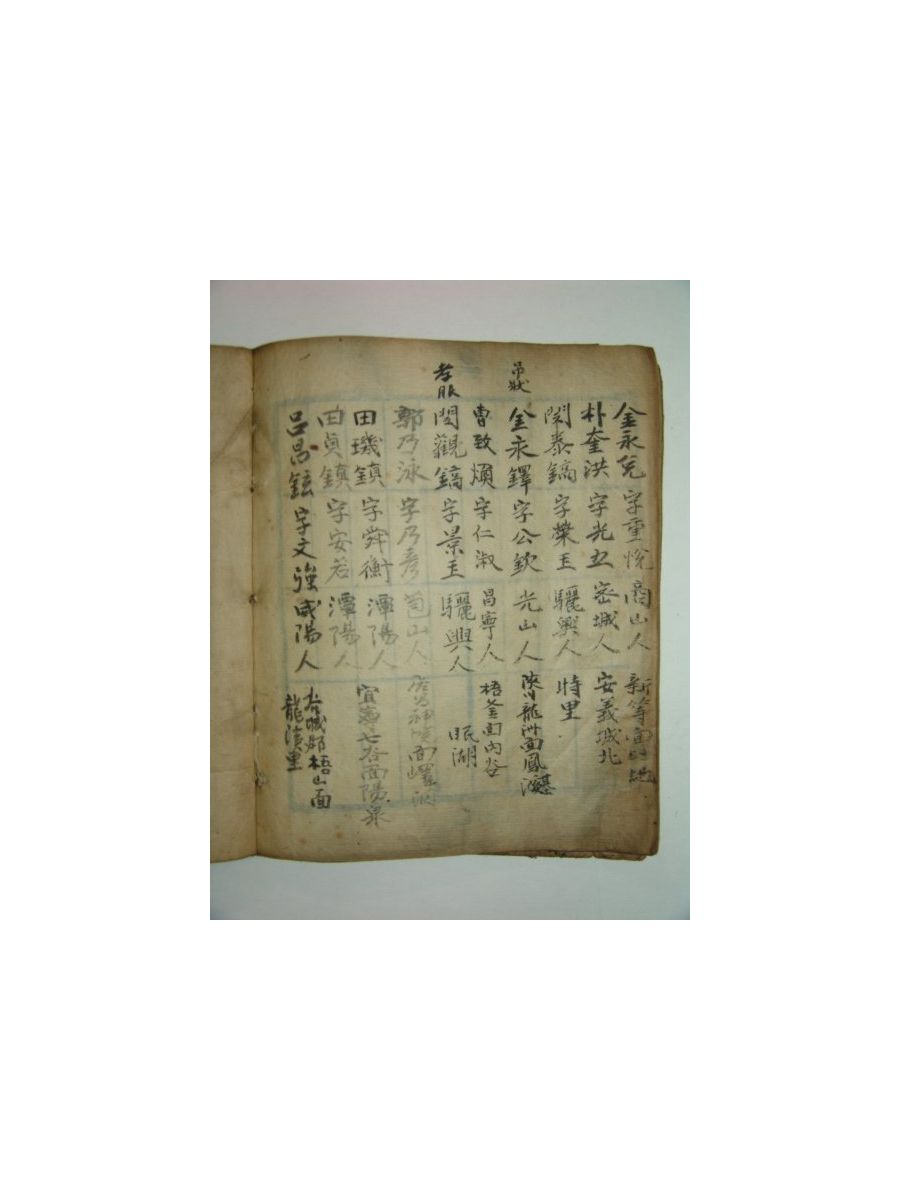 金永兌 字重悅 商山人 新等面
朴奎洪 字光五 密城人 安義城北
閔泰鎬 字榮玉 驪興人 時里
弔狀
金永鐸 字公欽 光山人 陜川龍洲面鳳
曺致煩 字仁淑 昌寧人 梧釜面內谷
孝服
閔觀鎬 字景玉 驪興人 眠湖
郭乃泳 字乃彥 苞山人
田璣鎭 字舜衡 潭陽人 宜寧七谷面陽泉
田眞鎭 字安若 潭陽人
呂昌鉉 字文強 咸陽人 梧山面
龍渼里